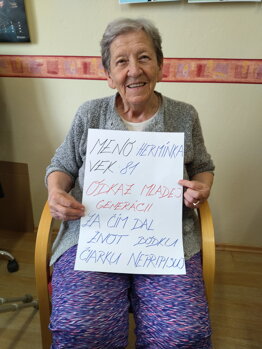 MENO HERMÍNKA
VEK 81
ODKAZ MLADEJ
GENERÁCII
ZA ČÍM DAL
ŽIVOT BODKU
ČIARKU NEPRIPISUJ